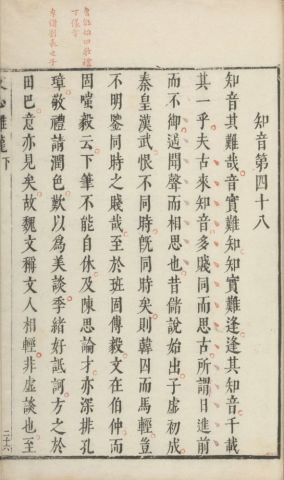 知音第四十八
知音其難哉音實難知知實難逢逢其知音千載
其一乎夫古來知音多賤同而思古所謂日進前
而不御遙聞聲而相思也昔儲說始出子虛初成
秦皇漢武恨不同時旣同時矣則韓囚而馬輕豈
不明鑒同時之賤哉至於班固傅毅文在伯仲而
固嗤毅云下筆不能自休及陳思論才亦深排孔
璋敬禮請潤色歎以爲美談季緒好詆訶方之於
田巴意亦見矣故魏文稱文人相輕非虛談也至
文心雕龍下 二十六